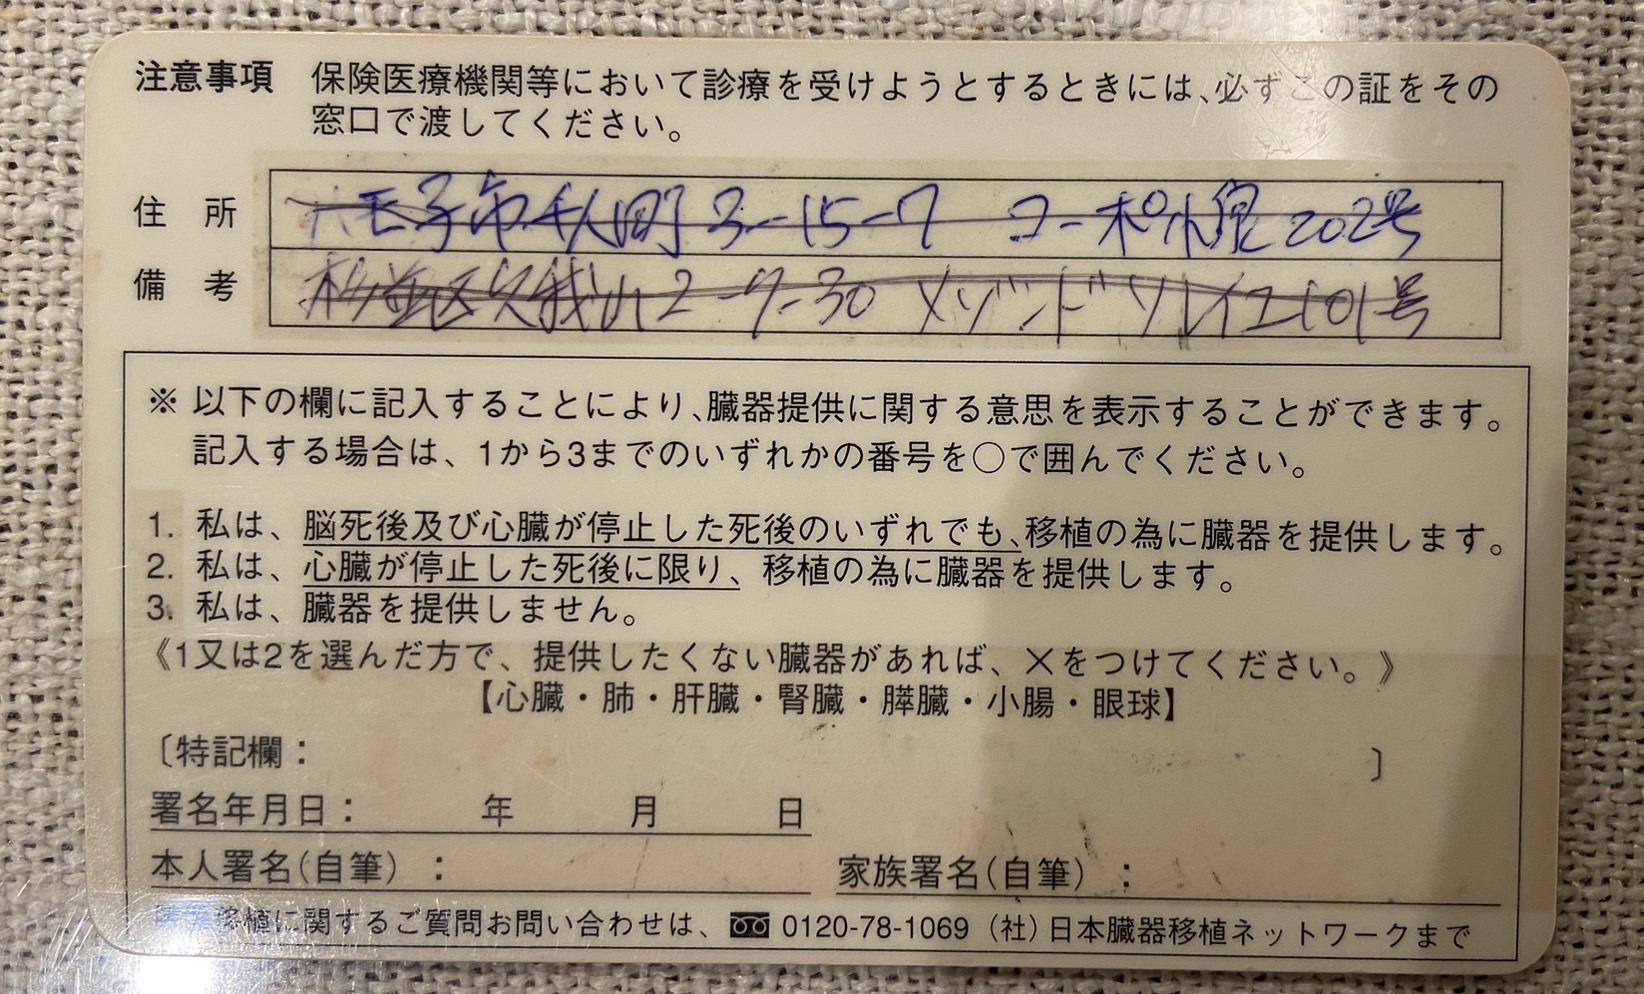 注意事項 保険医療機関等において診療を受けようとするときには、必ずこの証をその
窓口で渡してください。
住所 八王子市千人町3-15-7 コーポ小泉202号
備考 杉並区久我山2-9-30 メゾンドソレイユ101号
※ 以下の欄に記入することにより、臓器提供に関する意思を表示することができます。
記入する場合は、1から3までのいずれかの番号を○で囲んでください。
1. 私は、脳死後及び心臓が停止した死後のいずれでも、移植の為に臓器を提供します。
2. 私は、心臓が停止した死後に限り、移植の為に臓器を提供します。
3. 私は、臓器を提供しません。
《1又は2を選んだ方で、提供したくない臓器があれば、×をつけてください。》
【心臓・肺・肝臓・腎臓・膵臓・小腸・眼球】
〔特記欄： 〕
署名年月日： 年 月 日
本人署名(自筆)： 家族署名(自筆)：
移植に関するご質問お問い合わせは、 0120-78-1069 (社)日本臓器移植ネットワークまで